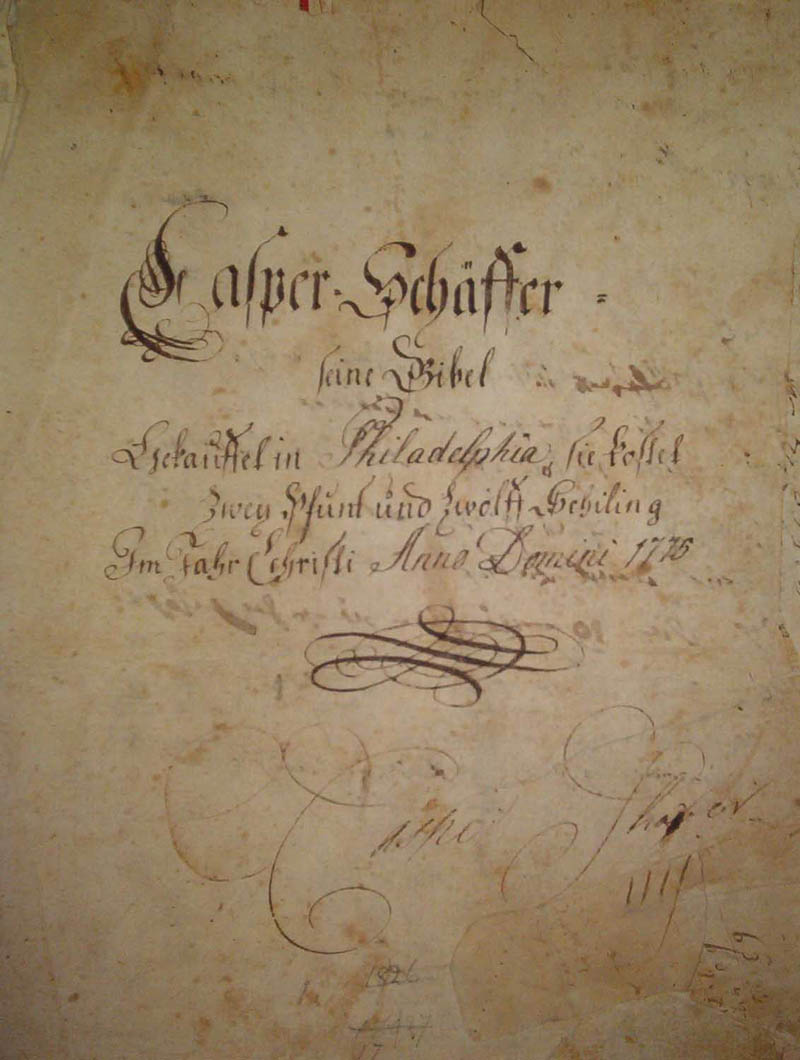 Casper Schäffer =
seine Bibel
Gekauffet in Philadelphia, sie kostet
zwey Pfunt und zwölff Schiling
Im Jahr Christi Anno Domini 1775
Casper Shafer
1826